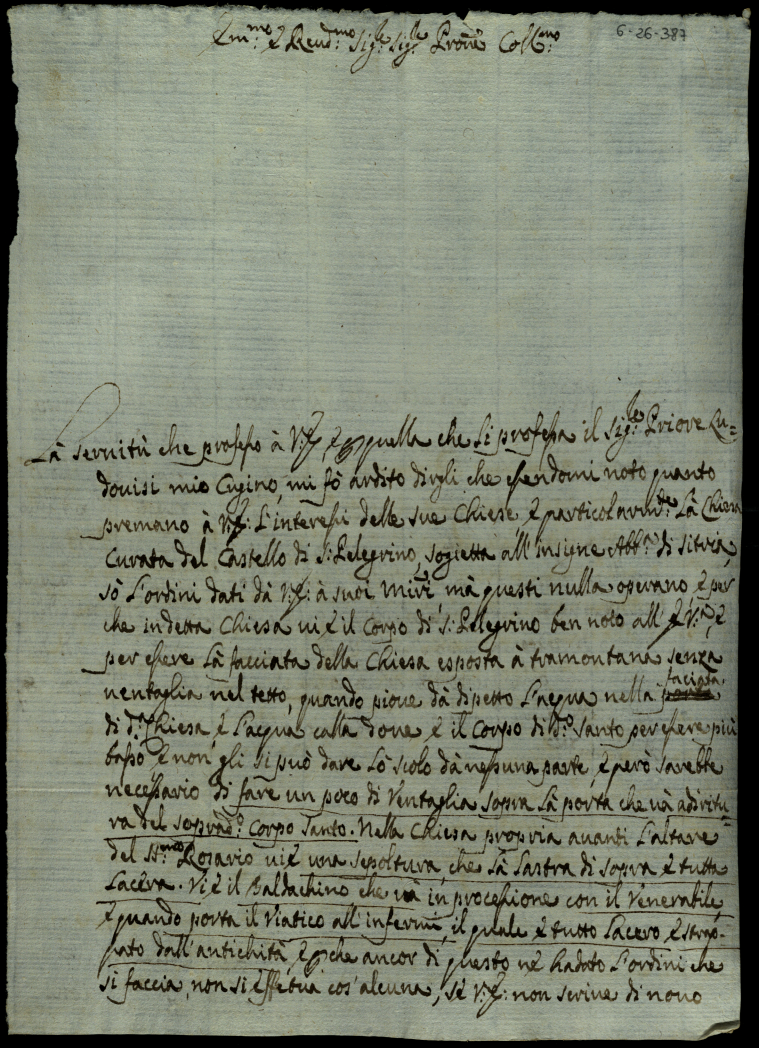 6-26-387
Em:mo e Reud:mo Sig:re Sig:re Prone Coll:mo
La seruitù che professo à V:E: e p quella che li professa il sig:re Priore Lu=
douisi mio Cugino, mi fò ardito dirgli che essendomi noto quanto
premano à V:E: l'interessi delle sue Chiese e particolarm:te la Chiesa
Curata del Castello di S: Pelegrino, sogietta all'insigne Abb:a di sitria,
sò l'ordini dati dà V:E: à suoi Miri mà questi nulla operano, e per
che in detta Chiesa ui è il Corpo di S: Pelegrino ben noto all' E V:a, e
per essere la facciata della Chiesa esposta à tramontana senza
uentaglia nel tetto, quando pioue dà di petto l'acqua nella porta faciata
di d:a Chiesa, e l'acqua calla doue è il Corpo di d:o Santo per essere più
basso e non gli si può dare lo scolo dà nessuna parte, e però sarebbe
necessario di fare un poco di Ventaglia sopra la porta che uà adiritu=
ra del sopräd:o Corpo Santo. Nella Chiesa propria auanti l'altare
del SS:mo Rosario ui è una sepoltura, che la lastra di sopra è tutta
lacera. Vi è il Baldachino che uà in processione con il Venerabile,
e quando porta il Viatico all'infermi, il quale è tutto lacero e strap=
pato dall'antichità, e p che ancor di questo nè hà dato l'ordini che
si faccia, non si effetua cos'alcuna, sè V:E: non scriue di nouo